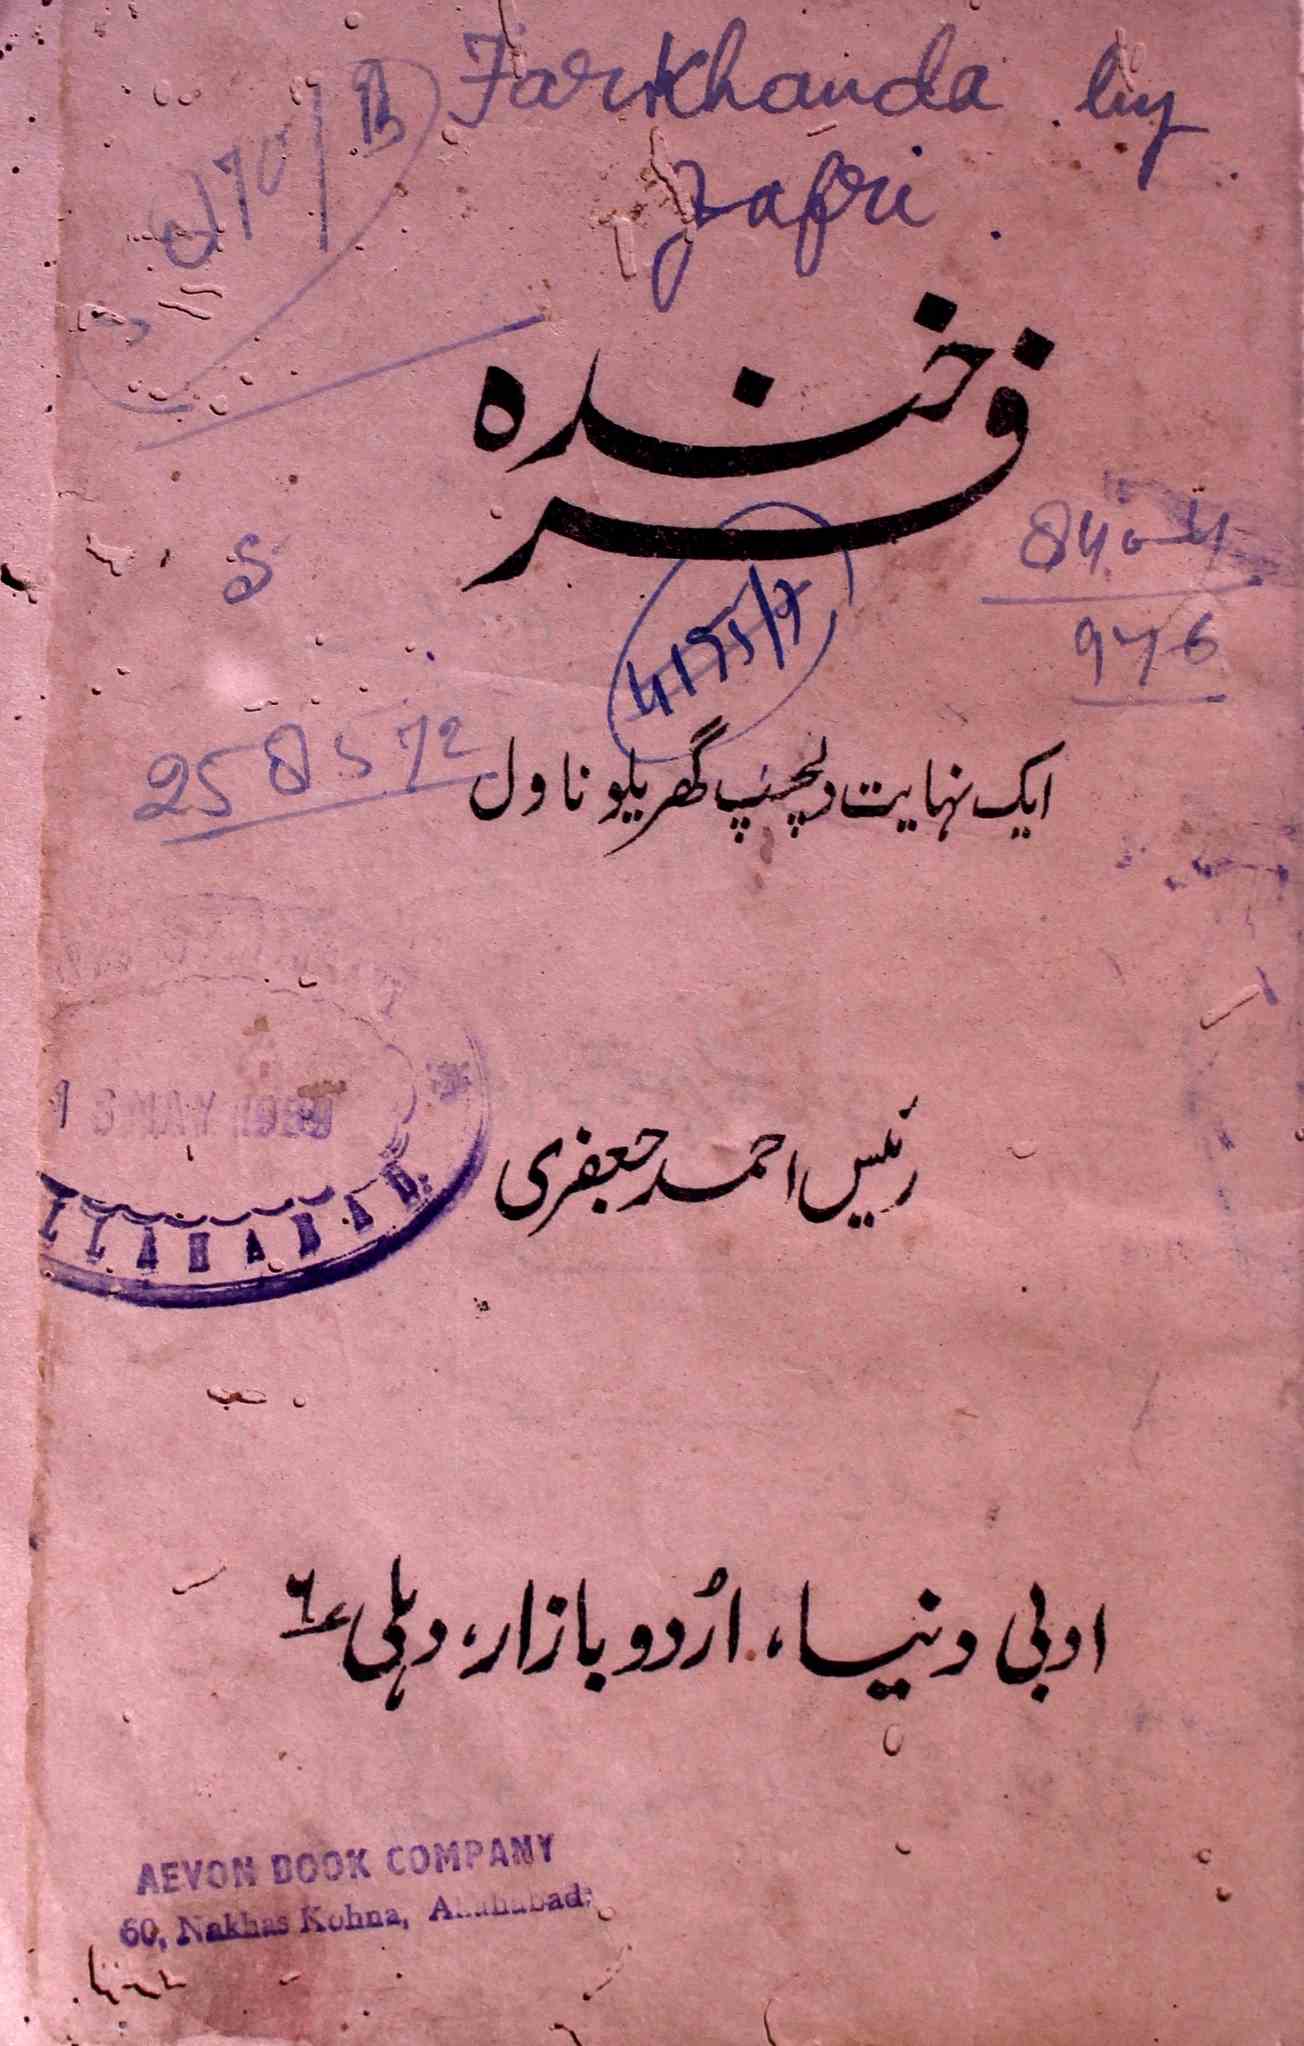 Farkhanda by
Jafri
فرخندہ
4195/7
258572
ایک نہایت دلچسپ گھریلو ناول
رئیس احمد جعفری
ادبی دنیا، اُردو بازار، دہلی ۶
AEVON BOOK COMPANY
60, Nakhas Kohna, Allahabad